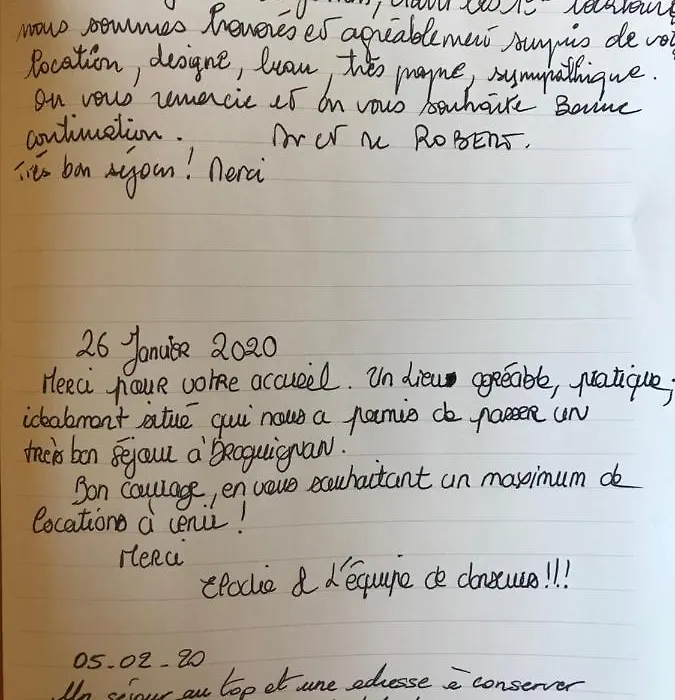 nous sommes honorés et agréablement surpris de vot
location, designe, beau, très propre, sympathique.
On vous remercie et on vous souhaite Bonne
continuation. Mr et Me ROBERT.
Très bon séjour! Merci
26 Janvier 2020
Merci pour votre accueil. Un Lieu agréable, pratique,
idéalement situé qui nous a permis de passer un
très bon séjour à Draguignan.
Bon courage, en vous souhaitant un maximum de
locations à venir!
Merci
Elodie & L'équipe de danseurs!!!
05-02-20
Un séjour au top et une adresse à conserver